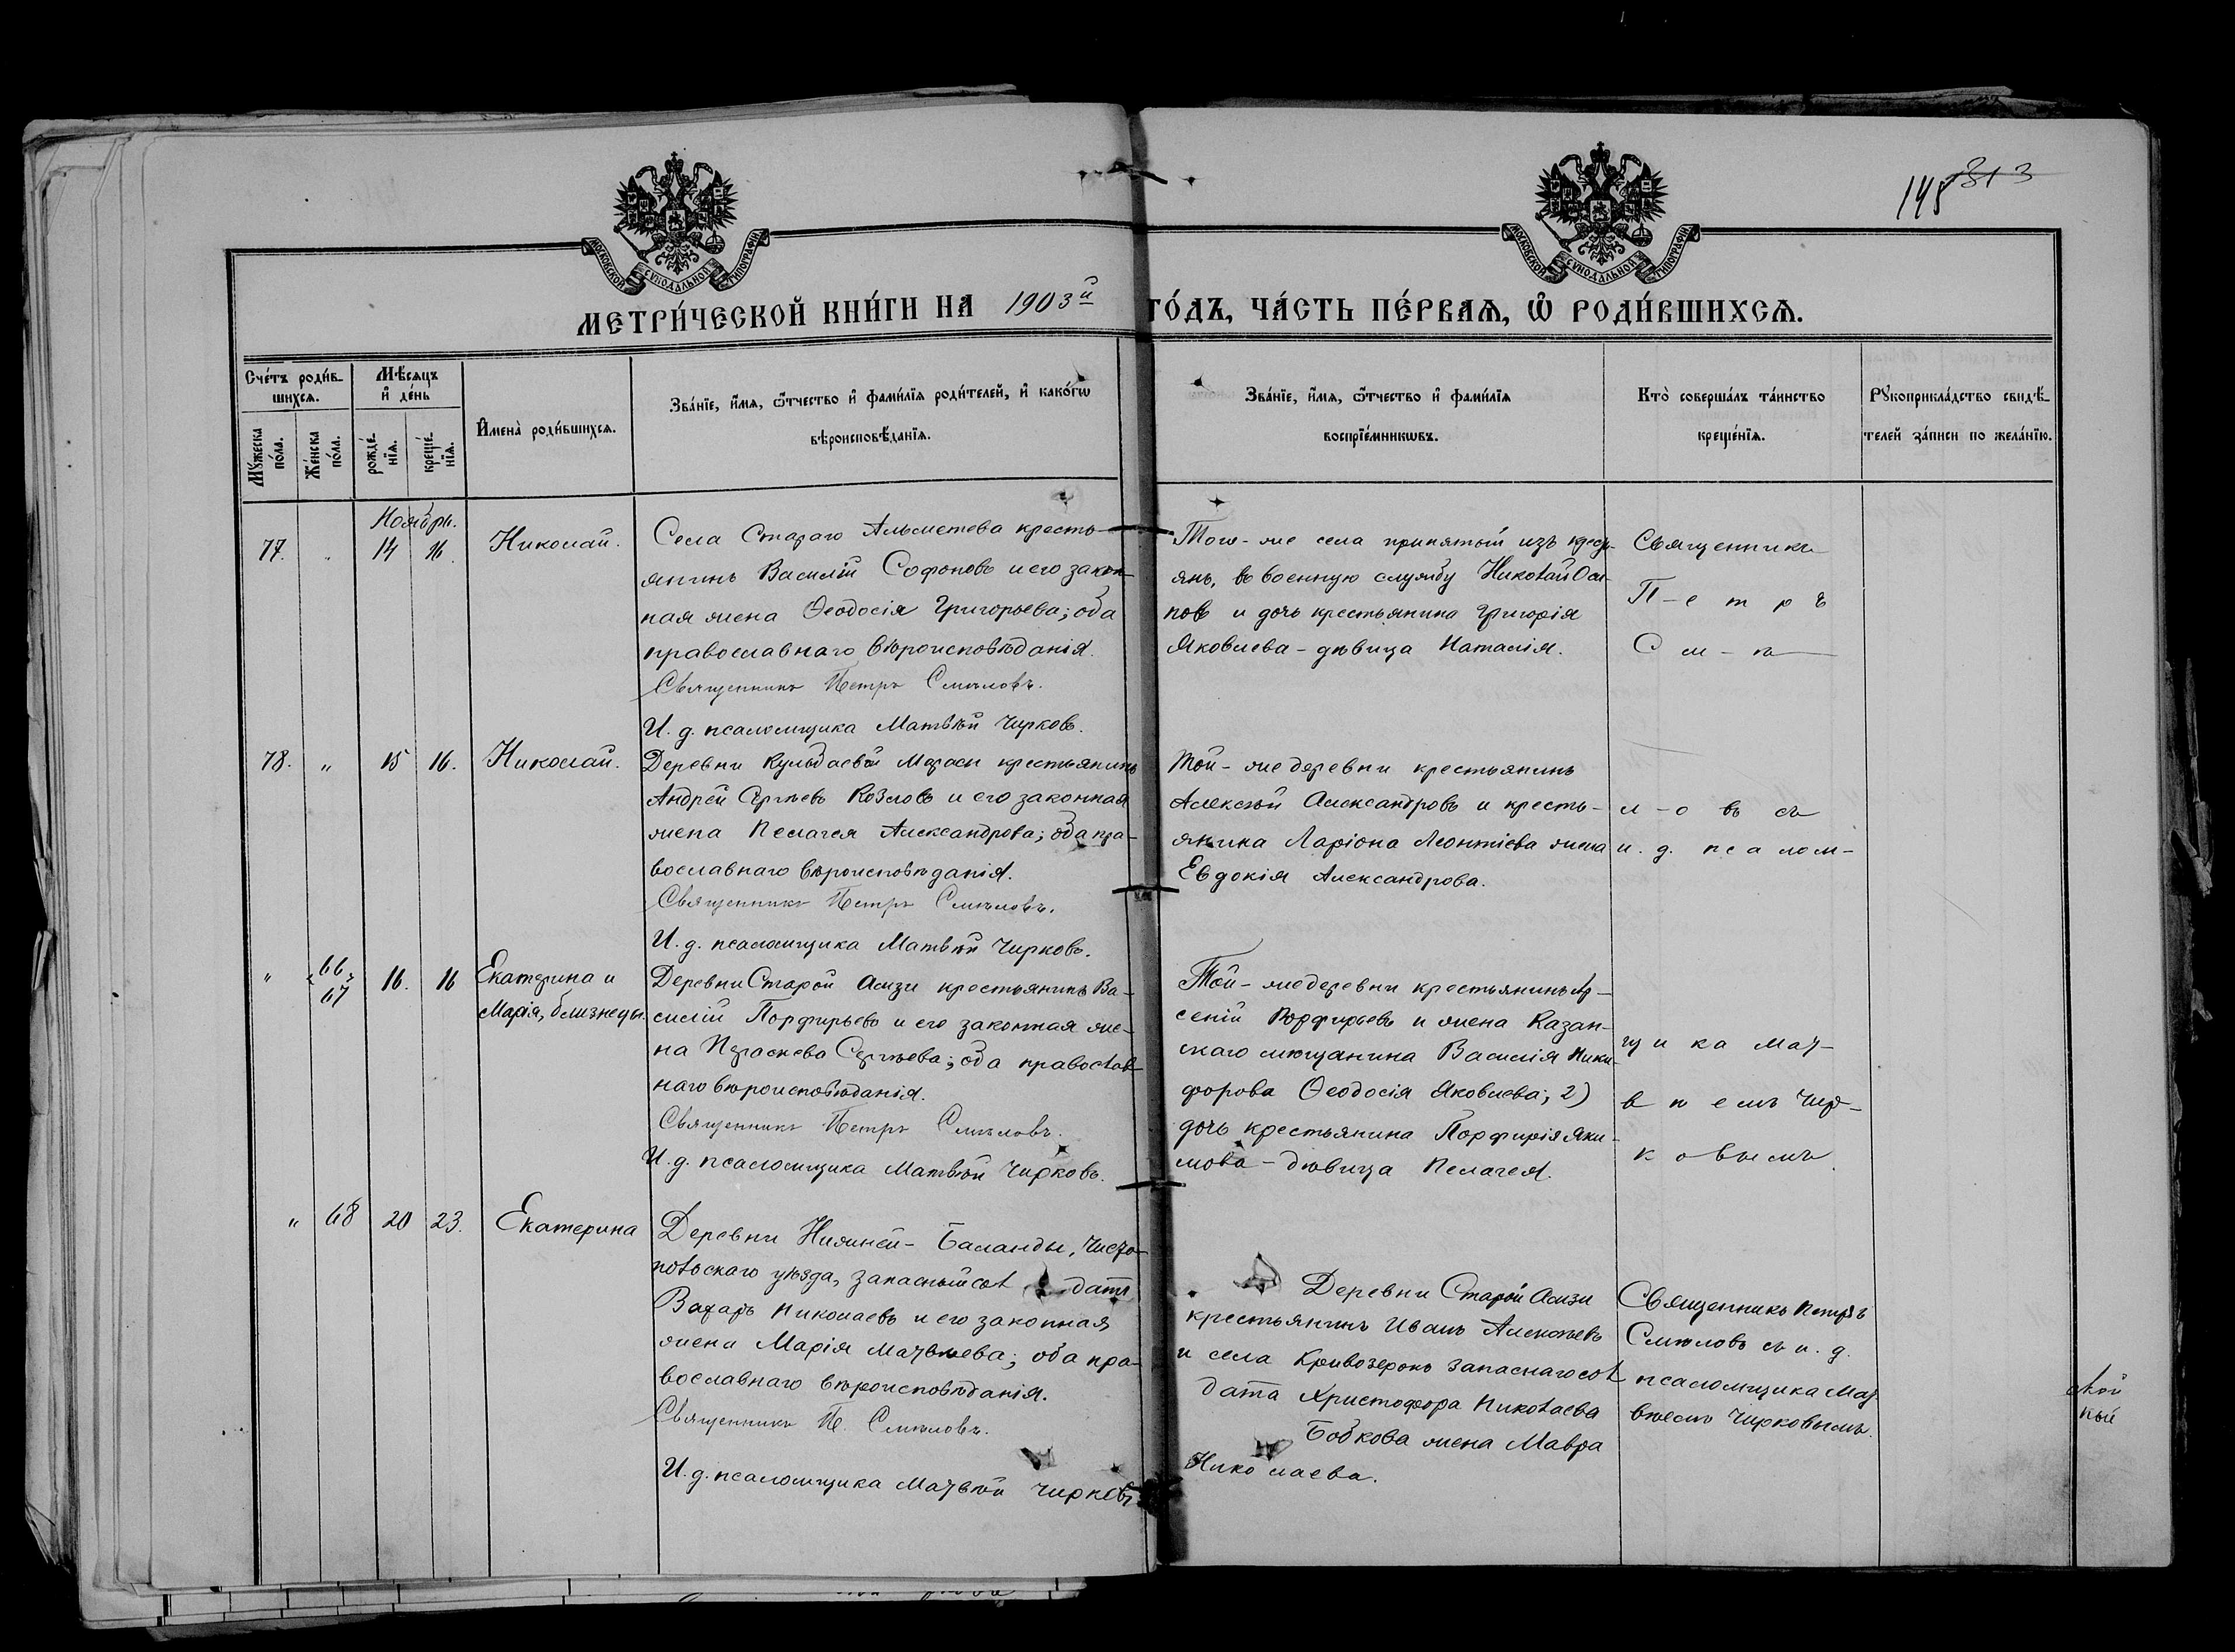 145 313
МОСКОВСКОЙ СѴНОДАЛЬНОЙ ТИПОГРАФІИ
МОСКОВСКОЙ СѴНОДАЛЬНОЙ ТИПОГРАФІИ
МЕТРИ́ЧЕСКОЙ КНИ́ГИ НА 1903й ГО́ДЪ, ЧА́СТЬ ПЕ́РВАѦ, Ѡ҆ РОДИ́ВШИХСѦ.
Сче́тъ роди́в-
шихсѧ.
Мꙋ́жеска по́ла.
Же́нска по́ла.
Мѣ́сѧцъ и҆ де́нь
рожде́-
нїѧ.
креще́-
нїѧ.
И҆мена̀ роди́вшихсѧ.
Зва́нїе, и҆́мѧ, ѻ҆́тчество и҆ фами́лїѧ роди́телей, и҆ како́гѡ
вѣроисповѣ́данїѧ.
Зва́нїе, и҆́мѧ, ѻ҆́тчество и҆ фами́лїѧ
воспрїе́мникѡвъ.
Кто̀ соверша́лъ та́инство
креще́нїѧ.
Рꙋкоприкла́дство свидѣ́-
телей за́писи по жела́нїю.
Ноября.
77. " 14 16. Николай.
Села Стараго Альметева кресть-
янинъ Василій Софоновъ и его закон-
ная жена Ѳеодосія Григорьева; оба
православнаго вѣроисповѣданія.
Священникъ Петръ Смѣловъ.
И. д. псаломщика Матвѣй Чирковъ.
Того-же села принятый изъ крестъ-
янъ, въ военную службу Николай Оси-
повъ и дочь крестьянина Григорія
Яковлева - дѣвица Наталія.
Священникъ
П-е т р ъ
С м - ѣ
78. " 15 16. Николай.
Деревни Кульбаевой Мараси крестьянинъ
Андрей Сергѣевъ Козловъ и его законная
жена Пелагея Александрова; оба пра-
вославнаго вѣроисповѣданія.
Священникъ Петръ Смѣловъ.
И. д. псаломщика Матвѣй Чирковъ.
Той-же деревни крестьянинъ
Алексѣй Александровъ и кресть-
янина Ларіона Леонтіева жена
Евдокія Александрова.
л - о въ съ
и. д. псалом-
" 66 67 16. 16 Екатерина и
Марія, близнецы.
Деревни Старой Амзи крестьянинъ Ва-
силій Порфирьевъ и его законная же-
на Параскева Сергѣева; оба православ-
наго вѣроисповѣданія.
Священникъ Петръ Смѣловъ.
И. д. псаломщика Матвѣй Чирковъ.
Той-же деревни крестьянинъ Ар-
сеній Порфирьевъ и жена Казан-
скаго мѣщанина Василія Ники-
форова Ѳеодосія Яковлева; 2)
дочь крестьянина Порфирія Яки-
мова - дѣвица Пелагея.
щ и ка Мат-
в ѣ емъ Чир-
к овымъ.
" 68 20 23. Екатерина
Деревни Нижней-Баланды, Чисто-
польскаго уѣзда, запасный сол датъ
Захаръ Николаевъ и его законная
жена Марія Матвѣева; оба пра-
вославнаго вѣроисповѣданія.
Священникъ П. Смѣловъ.
И. д. псаломщика Матвѣй Чирковъ
Деревни Старой Амзи
крестьянинъ Иванъ Алексѣевъ
и села Кривозеровъ запаснаго сол
дата Христофора Николаева
Бобкова жена Мавра
Николаева.
Священникъ Петръ
Смѣловъ съ и. д.
псаломщика Мат
вѣемъ Чирковымъ.